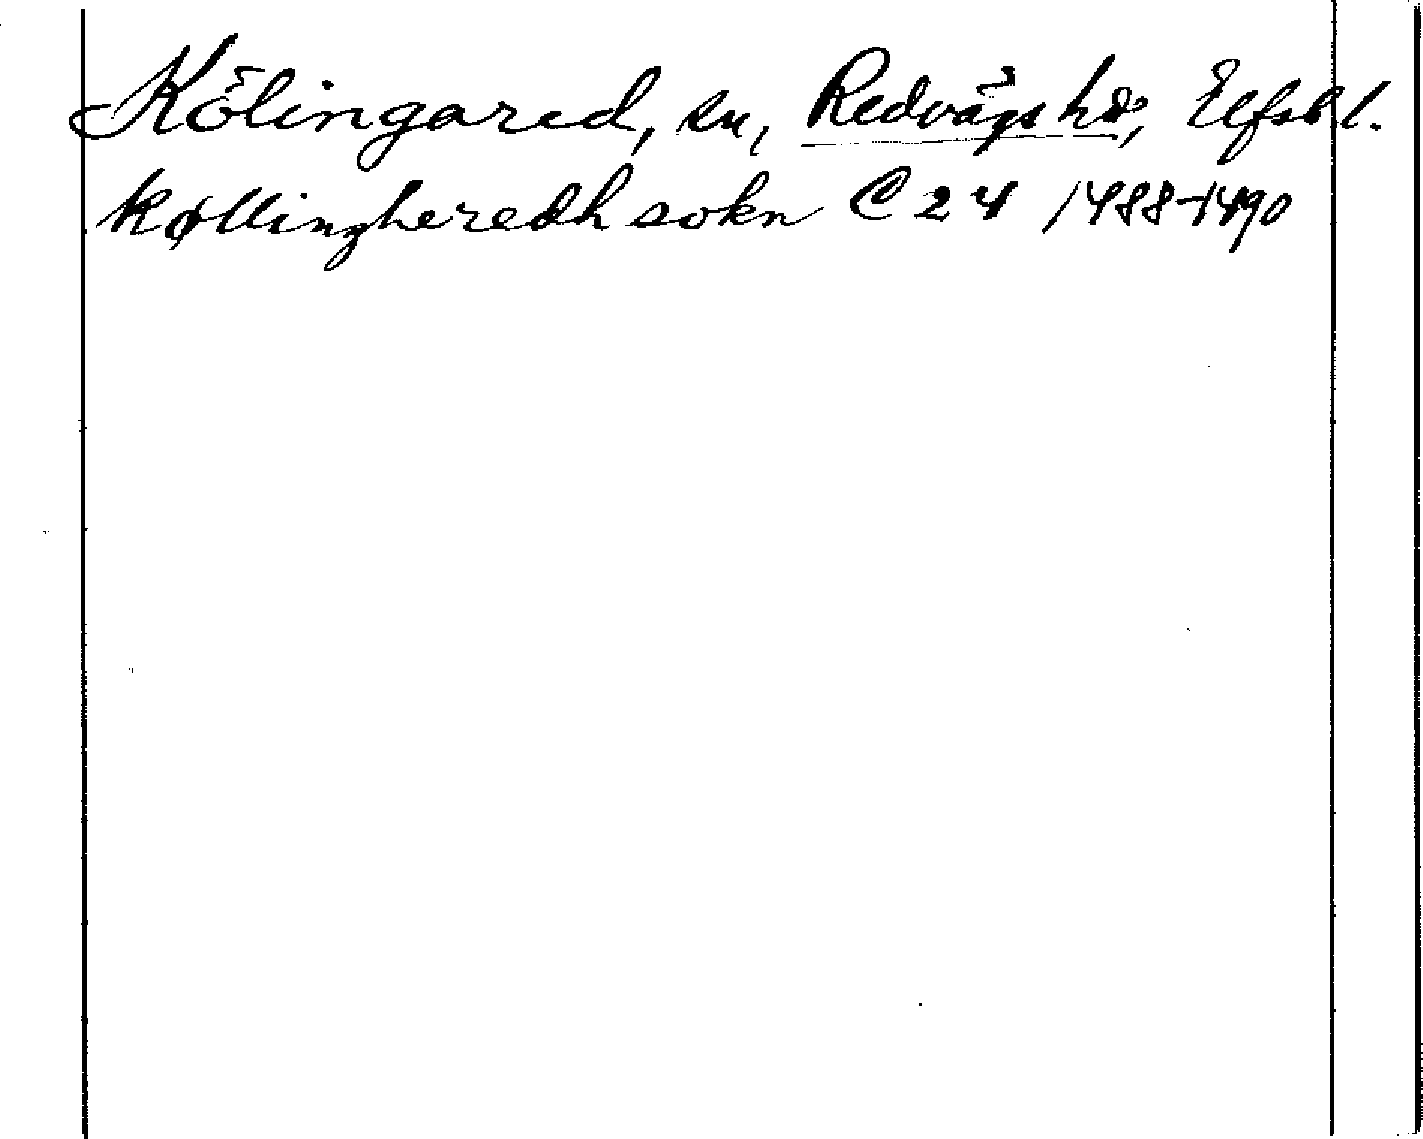 Kölingared, sn, Redvägs hd, Elfsb l.
Køllingheredh sokn C 24 1488-1490